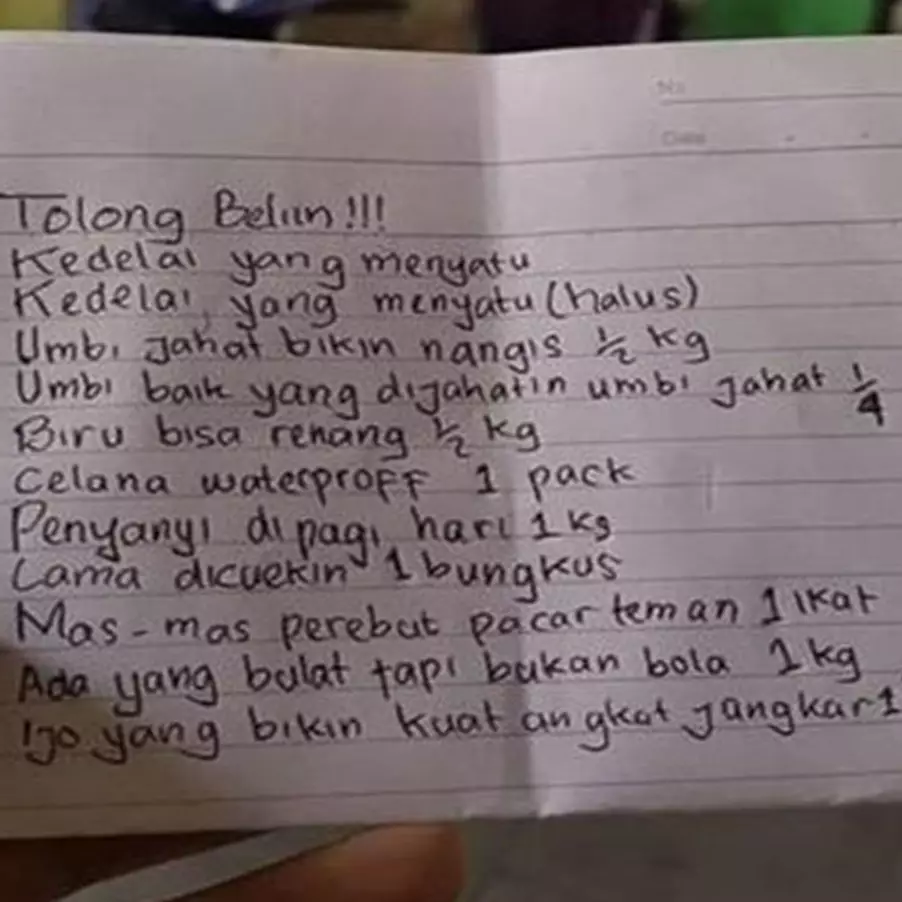 No
Date
Tolong Beliin!!!
Kedelai yang menyatu
Kedelai, yang menyatu (halus)
Umbi Jahat bikin nangis 1/2 kg
Umbi baik yang dijahatin umbi jahat 1/4
Biru bisa renang 1/2 kg
Celana waterproff 1 pack
Penyanyi di pagi hari 1 kg
Lama dicuekin 1 bungkus
Mas-mas perebut pacar teman 1 ikat
Ada yang bulat tapi bukan bola 1 kg
Ijo yang bikin kuat angkat jangkar 1